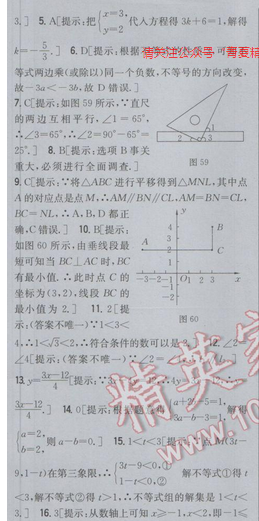 3.] 5. A[提示:把{x=3, y=2 代入方程得 3k+6=1,解得
k=-5/3.] 6. D[提示:根据不等式的性质,可
等式两边乘(或除以)同一个负数,不等号的方向改变,
故-3a<-3b,故 D 错误.]
7. C[提示:如图 59 所示,∵直尺
的两边互相平行,∠1=65°,
∴∠3=65°,∴∠2=90°-65°=
25°.] 8. B[提示:选项 B 事关
重大,必须进行全面调查.]
图 59
9. C[提示:∵将△ABC 进行平移得到△MNL,其中点
A 的对应点是点 M,∴AM∥BN∥CL,AM=BN=CL,
BC=NL,∴A、B、D 都正
确,C 错误.] 10. B[提示:
如图 60 所示,由垂线段最
短可知当 BC⊥AC 时,BC
有最小值.∴此时点 C 的
坐标为(3,2),线段 BC 的
最小值为 2.] 11. 2[提
示:(答案不唯一)∵1<3<
图 60
4,∴1<√3<2,∴符合条件的数可以是 2.] 12. ∠2=
∠4[提示:(答案不唯一)∵∠2=
13. y=(3x-12)/4[提示:∵3x-4y=12,∴4y=3x-12,∴
(3x-12)/4.] 14. 0[提示:根据题意得{a+2b-5=1, -b-3=1, 解得
{a=2, b=2, 则 a-b=0.] 15. 1<t<3[提示:∵点 M(3t-
9,1-t)在第三象限,∴{3t-9<0,① 1-t<0,② 解不等式①得 t
<3,解不等式②得 t>1,∴不等式组的解集是 1<t<
3.] 16. 3[提示:从数轴上可知 x≥-1,x<2,即-1≤
精英家